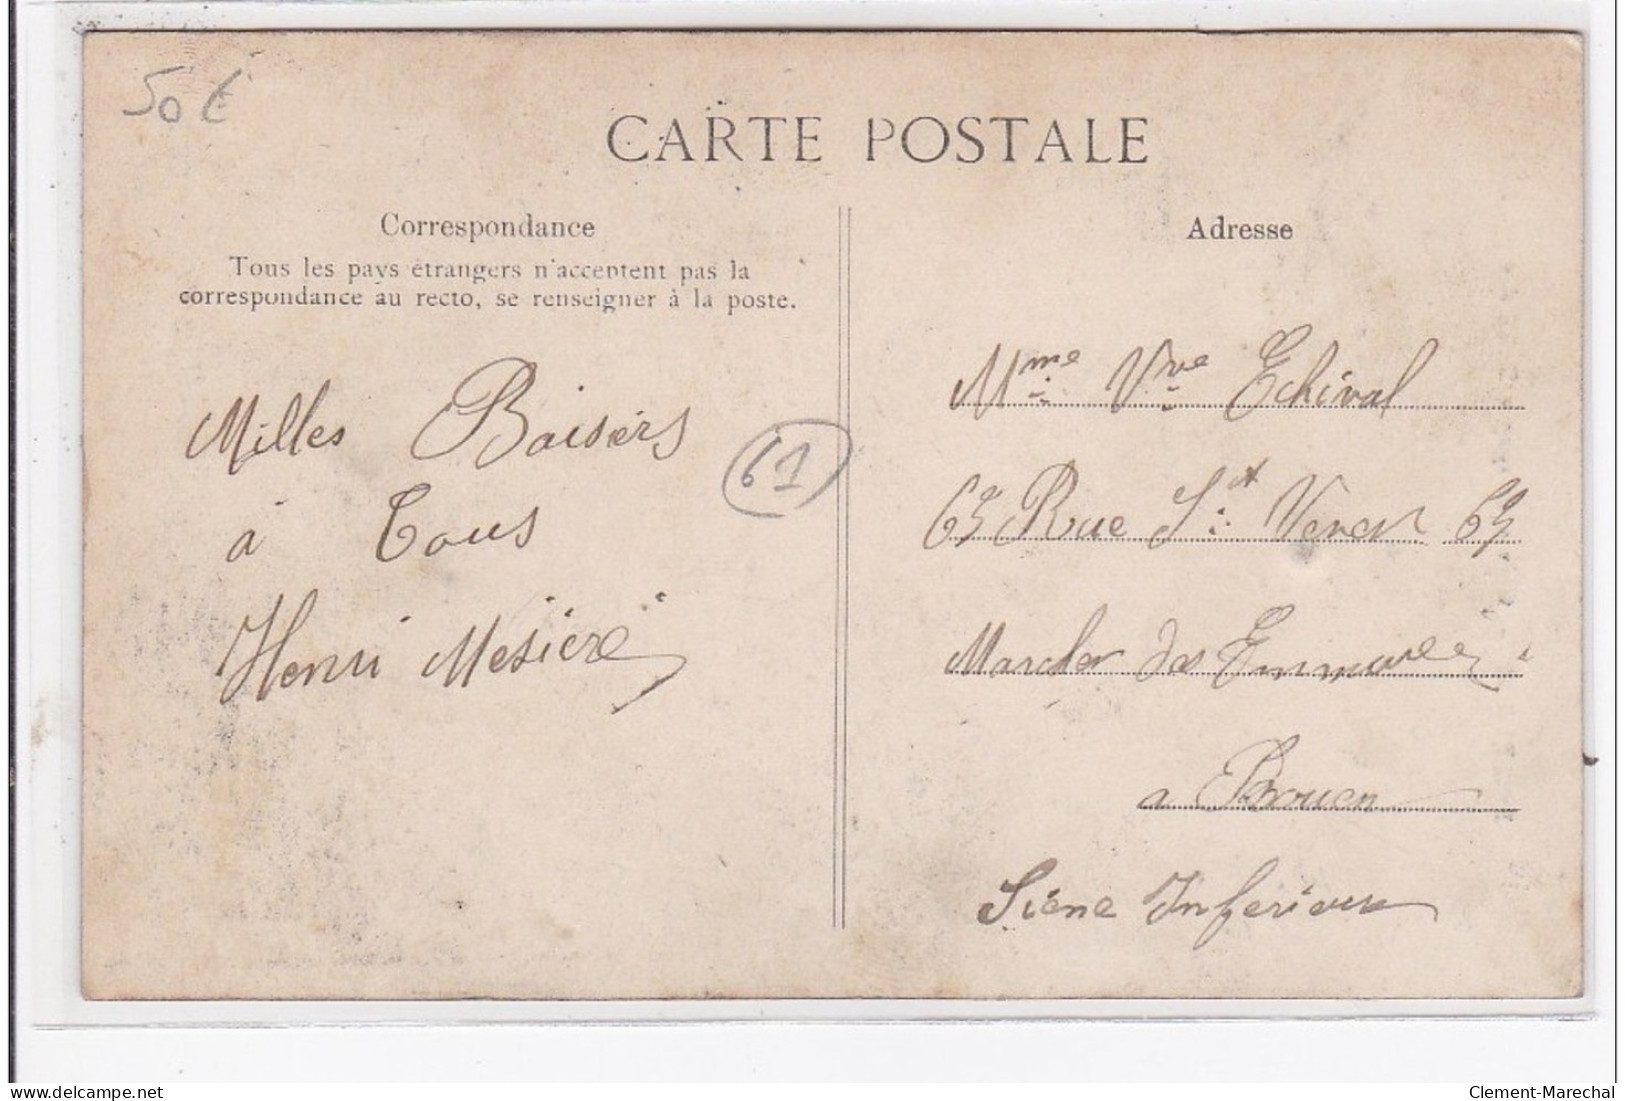 50 €
CARTE POSTALE
Correspondance
Tous les pays étrangers n'acceptent pas la
correspondance au recto, se renseigner à la poste.
Milles Baisers
à Tous
Henri Mesiere
61
Adresse
Mme Vve Echival
65 Rue St Vener 65
des
a Rouen
Siene Inferieur
Clement-Marechal
delcampe.net